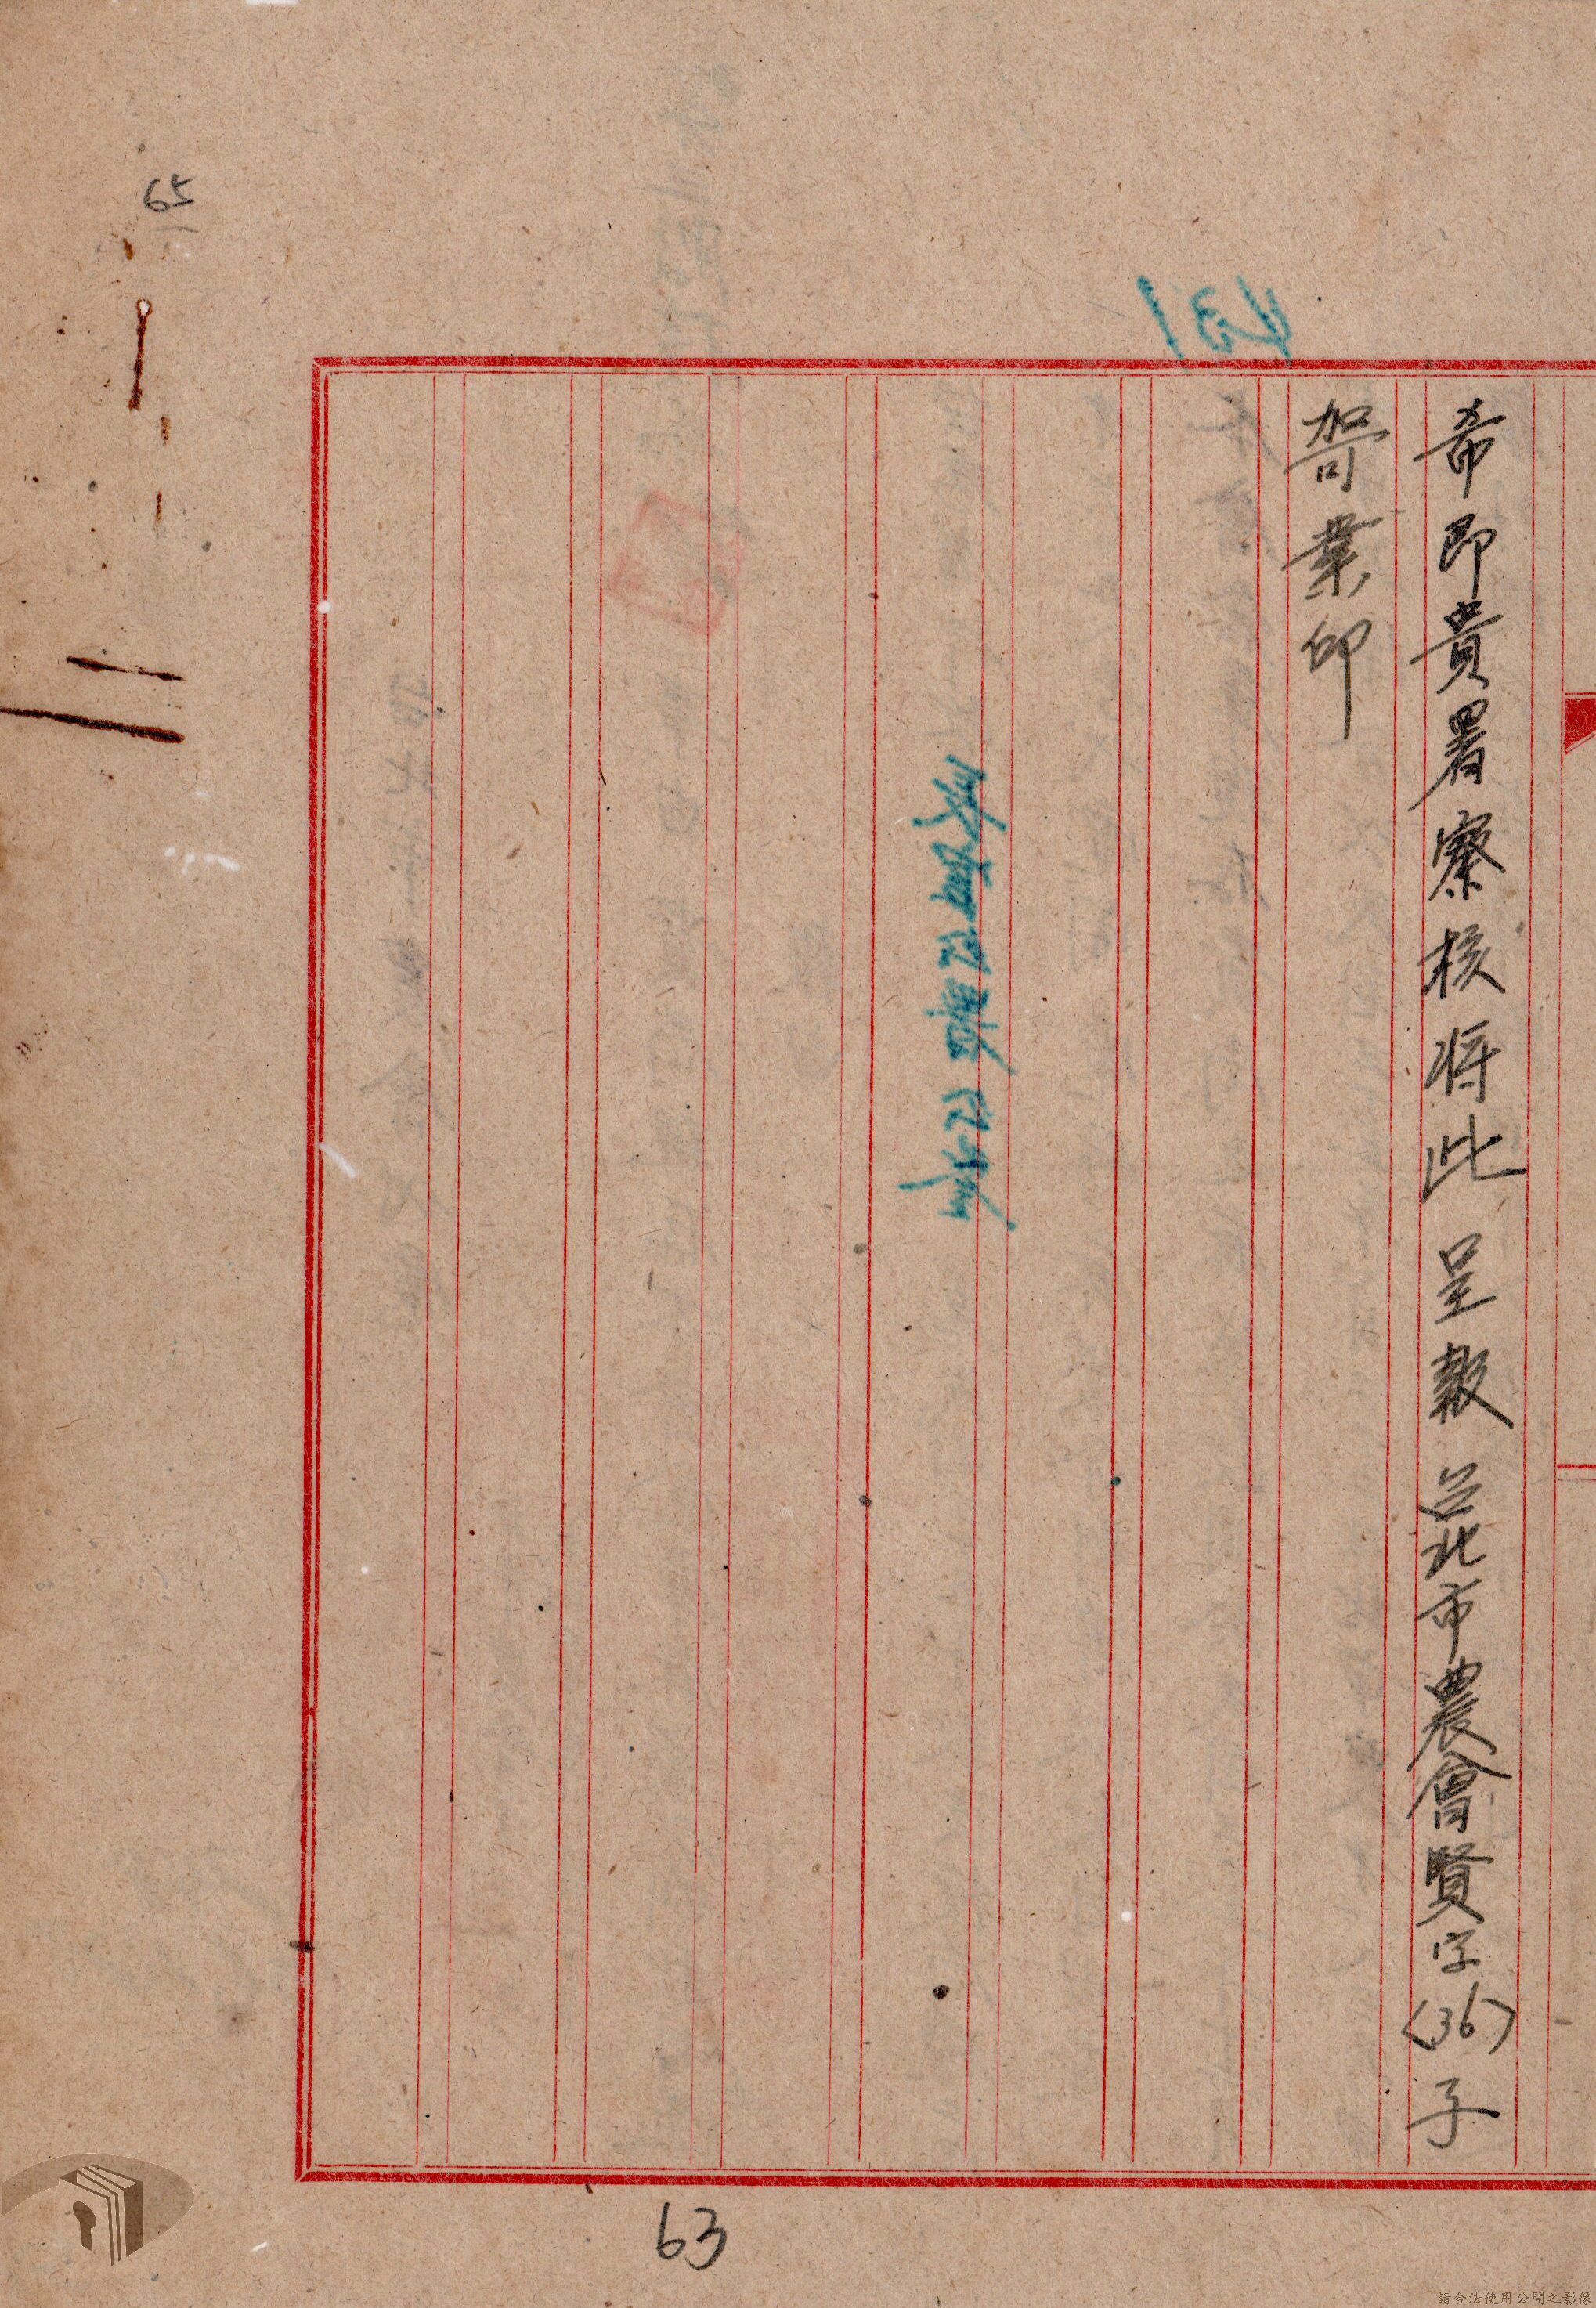 希即貴署察核将此呈報 台北市農會賢字〈36〉子
哿業印
65
63
請合法使用公開之影像